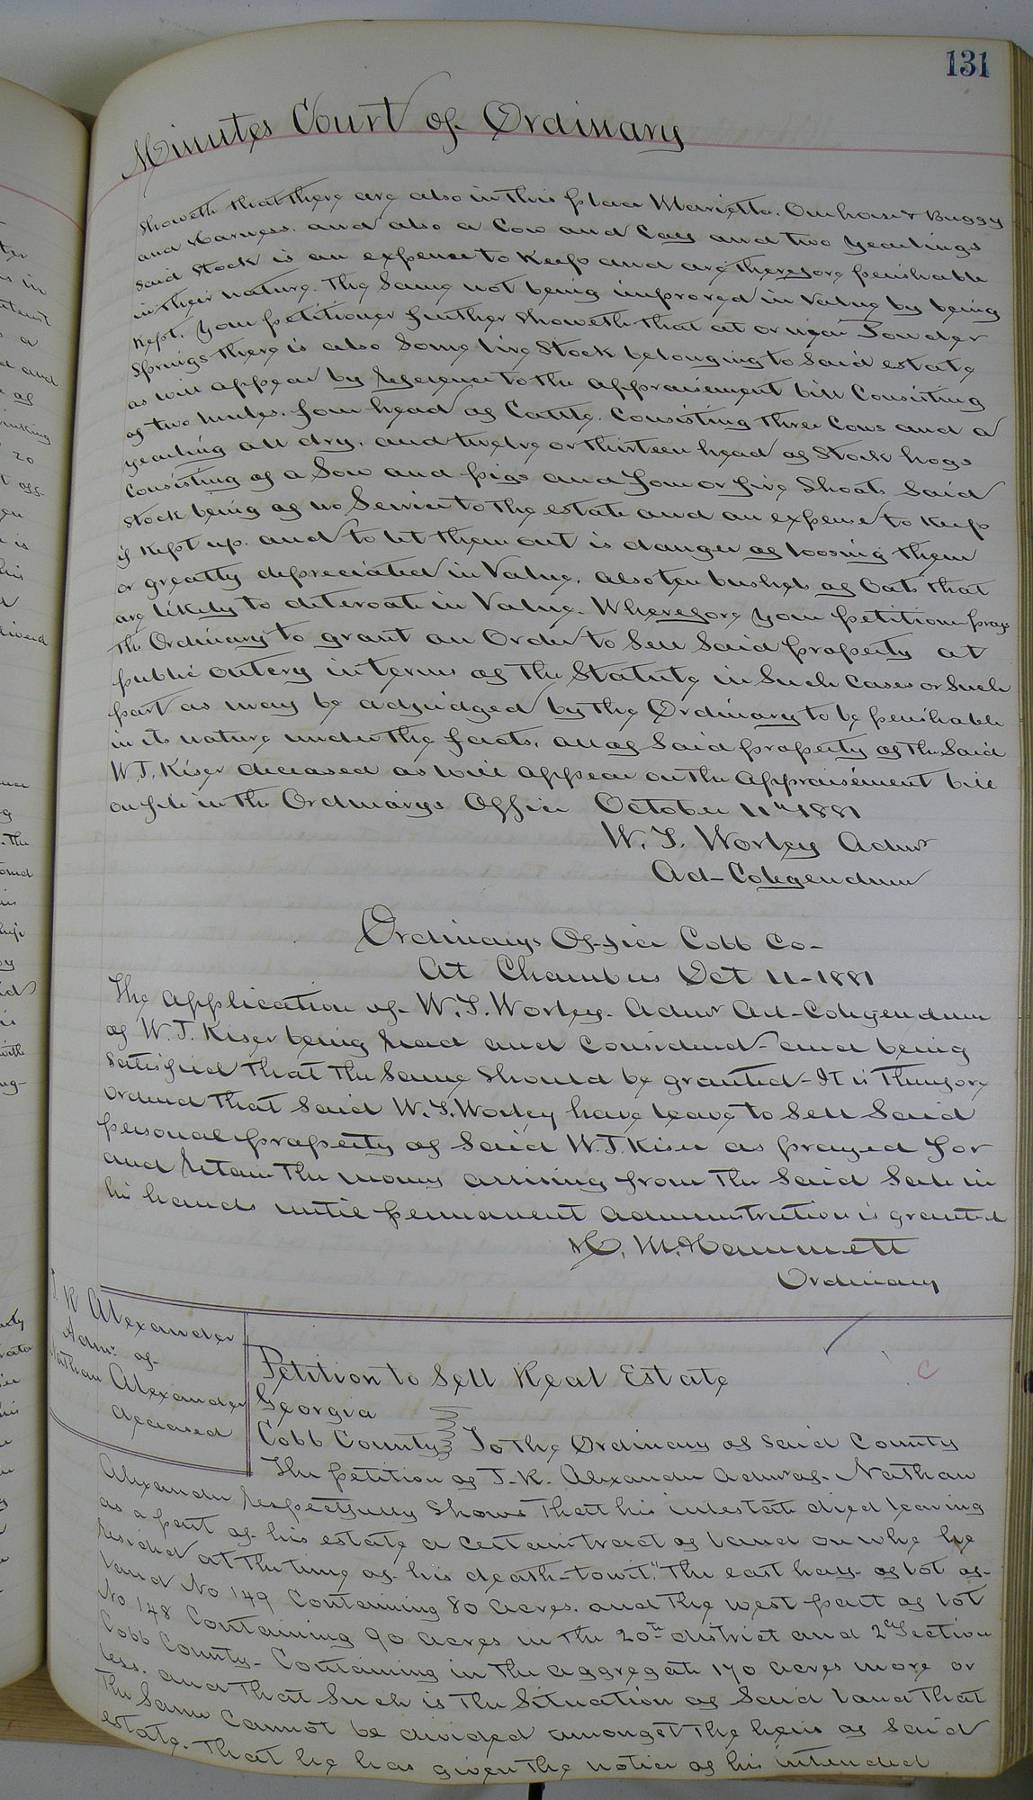 131
Minutes Court of Ordinary
Showeth that there are also in this place Marietta. One horse & Buggy
and Harness. and also a Cow and Calf and two yearlings
said stock is an expense to keep and are therefore perishable
in their nature. The same not being improved in value by being
kept. Your petitioner further showeth that at or near Powder
Springs there is also some live stock belonging to said estate
as will appear by reference to the appraisement bill Consisting
of two mules. four head of Cattle. Consisting three Cows and a
yearling all dry. and twelve or thirteen head of stock hogs
Consisting of a Sow and pigs and four or five shoats said
stock being of no service to the estate and an expense to keep
if kept up. and to let them out is danger of loosing them
or greatly depreciated in value. also ten bushels of Oats that
are likely to deteroate in value. Wherefore your petitioner prays
the Ordinary to grant an Order to sell said property at
public outcry in terms of the Statute in such cases or such
part as may be adjudged by the Ordinary to be perishable
in its nature under the facts. all of said property of the said
W. J. Kiser deceased as will appear on the appraisement bill
on file in the Ordinarys Office October 11th 1881
W. F. Worley Admr
Ad-Coligendum
Ordinarys Office Cobb Co-
At Chambers Oct 11-1881
The application of W. F. Worley. Admr Ad-Coligendum
of W. J. Kiser being read and considered- and being
satisfied that the same should be granted- It is Therefore
ordered that said W. F. Worley have leave to sell said
personal property of said W. J. Kiser as prayed for
and retain the money arrising from the said sale in
his hands until permanent administration is granted
H. M. Hammett
Ordinary
J. K Alexander
Admr. of
Nathan Alexander
deceased
Petition to Sell Real Estate
Georgia
Cobb County To the Ordinary of said County
The petition of J. K. Alexander admr of Nathan
Alexander respectfully shows that his intestate died leaving
as a part of his estate a certain tract of land on whc he
resided at the time of his death- towit: "The east half of lot of
land No 149 Containing 80 acres. and the west part of lot
No 148 Containing 90 acres in the 20th district and 2d Section
Cobb County- Containing in the aggregate 170 acres more or
less. and that such is the situation of said land that
the same cannot be divided amongst the heirs of said
estate. that he has given the notice of his intended